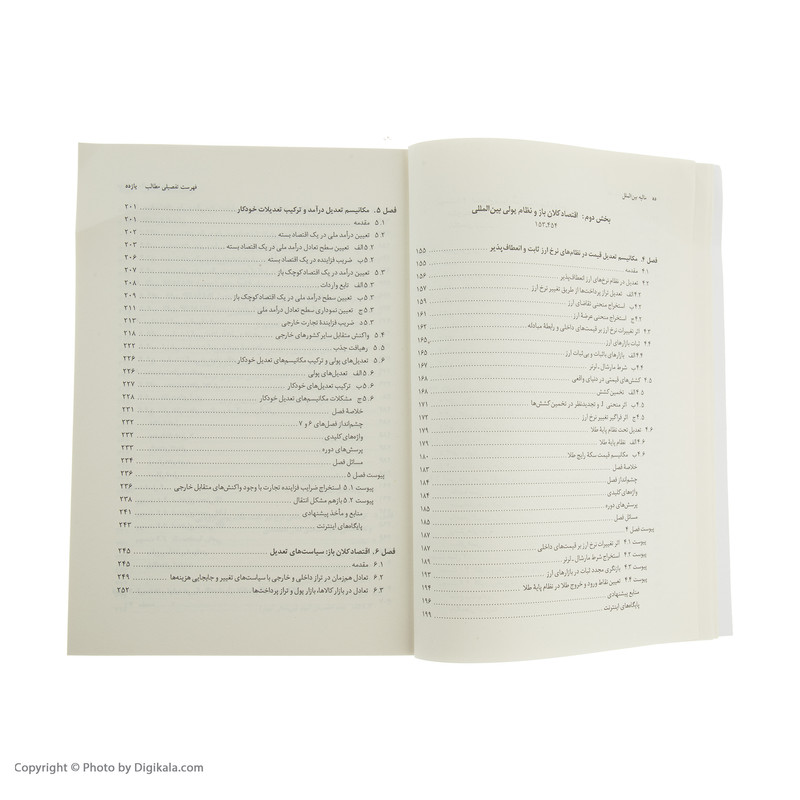 ده مالیه بین‌الملل
بخش دوم: اقتصاد کلان باز و نظام پولی بین‌المللی
۱۵۳،۴۵۴
فصل ۴. مکانیسم تعدیل قیمت در نظام‌های نرخ ارز ثابت و انعطاف‌پذیر ۱۵۵
۴.۱ مقدمه ۱۵۵
۴.۲ تعدیل در نظام نرخ‌های ارز انعطاف‌پذیر ۱۵۶
۴.۲الف تعدیل تراز پرداخت‌ها از طریق تغییر نرخ ارز ۱۵۷
۴.۲ب استخراج منحنی تقاضای ارز ۱۵۹
۴.۲ج استخراج منحنی عرضهٔ ارز ۱۶۱
۴.۳ اثر تغییرات نرخ ارز بر قیمت‌های داخلی و رابطهٔ مبادله ۱۶۲
۴.۴ ثبات بازارهای ارز ۱۶۵
۴.۴الف بازارهای باثبات و بی‌ثبات ارز ۱۶۵
۴.۴ب شرط مارشال ـ لرنر ۱۶۷
۴.۵ کشش‌های قیمتی در دنیای واقعی ۱۶۸
۴.۵الف تخمین کشش ۱۶۸
۴.۵ب اثر منحنی J و تجدیدنظر در تخمین کشش‌ها ۱۷۱
۴.۵ج اثر فراگیر تغییر نرخ ارز ۱۷۳
۴.۶ تعدیل تحت نظام پایهٔ طلا ۱۷۹
۴.۶الف نظام پایهٔ طلا ۱۷۹
۴.۶ب مکانیسم قیمت سکهٔ رایج طلا ۱۸۰
خلاصهٔ فصل ۱۸۳
چشم‌انداز فصل ۱۸۴
واژه‌های کلیدی ۱۸۴
پرسش‌های دوره ۱۸۵
مسائل فصل ۱۸۵
پیوست فصل ۴ ۱۸۷
پیوست ۴.۱ اثر تغییرات نرخ ارز بر قیمت‌های داخلی ۱۸۷
پیوست ۴.۲ استخراج شرط مارشال ـ لرنر ۱۸۹
پیوست ۴.۳ بازنگری مجدد ثبات در بازارهای ارز ۱۹۳
پیوست ۴.۴ تعیین نقاط ورود و خروج طلا در نظام پایهٔ طلا ۱۹۴
منابع پیشنهادی ۱۹۶
پایگاه‌های اینترنت ۱۹۹
فهرست تفصیلی مطالب یازده
فصل ۵. مکانیسم تعدیل درآمد و ترکیب تعدیلات خودکار ۲۰۱
۵.۱ مقدمه ۲۰۱
۵.۲ تعیین درآمد ملی در یک اقتصاد بسته ۲۰۲
۵.۲الف تعیین سطح تعادل درآمد ملی در یک اقتصاد بسته ۲۰۳
۵.۲ب ضریب فزاینده در یک اقتصاد بسته ۲۰۶
۵.۳ تعیین درآمد در یک اقتصاد کوچک باز ۲۰۷
۵.۳الف تابع واردات ۲۰۸
۵.۳ب تعیین سطح درآمد ملی در یک اقتصاد کوچک باز ۲۰۹
۵.۳ج تعیین نموداری سطح تعادل درآمد ملی ۲۱۱
۵.۳د ضریب فزایندهٔ تجارت خارجی ۲۱۳
۵.۴ واکنش متقابل سایر کشورهای خارجی ۲۱۸
۵.۵ رهیافت جذب ۲۲۲
۵.۶ تعدیل‌های پولی و ترکیب مکانیسم‌های تعدیل خودکار ۲۲۶
۵.۶الف تعدیل‌های پولی ۲۲۶
۵.۶ب ترکیب تعدیل‌های خودکار ۲۲۷
۵.۶ج مشکلات مکانیسم‌های تعدیل خودکار ۲۲۸
خلاصهٔ فصل ۲۳۱
چشم‌انداز فصل‌های ۶ و ۷ ۲۳۲
واژه‌های کلیدی ۲۳۲
پرسش‌های دوره ۲۳۳
مسائل فصل ۲۳۴
پیوست فصل ۵ ۲۳۶
پیوست ۵.۱ استخراج ضرایب فزاینده تجارت با وجود واکنش‌های متقابل خارجی ۲۳۶
پیوست ۵.۲ بازهم مشکل انتقال ۲۳۸
منابع و مآخذ پیشنهادی ۲۴۱
پایگاه‌های اینترنت ۲۴۳
فصل ۶. اقتصاد کلان باز: سیاست‌های تعدیل ۲۴۵
۶.۱ مقدمه ۲۴۵
۶.۲ تعادل هم‌زمان در تراز داخلی و خارجی با سیاست‌های تغییر و جابجایی هزینه‌ها ۲۴۹
۶.۳ تعادل در بازار کالاها، بازار پول و تراز پرداخت‌ها ۲۵۲
Copyright © Photo by Digikala.com